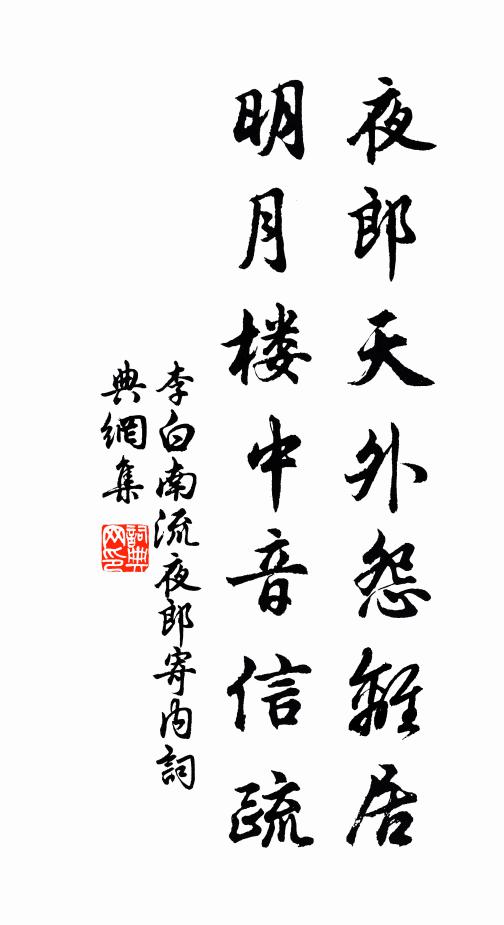 夜郎天外怨離居
明月楼中音信疏
李白南流夜郎寄内詞
典網集
詞典网印